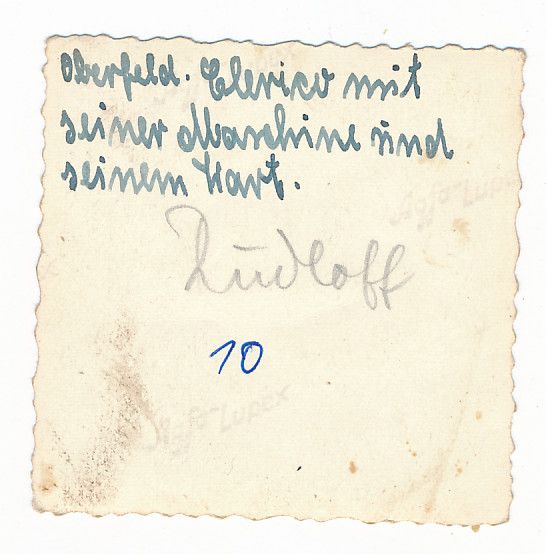 Oberfeld. Clerico mit
seiner Maschine und
seinem Wart.
Rudloff
10
Agfa-Lupex
Agfa-Lupex